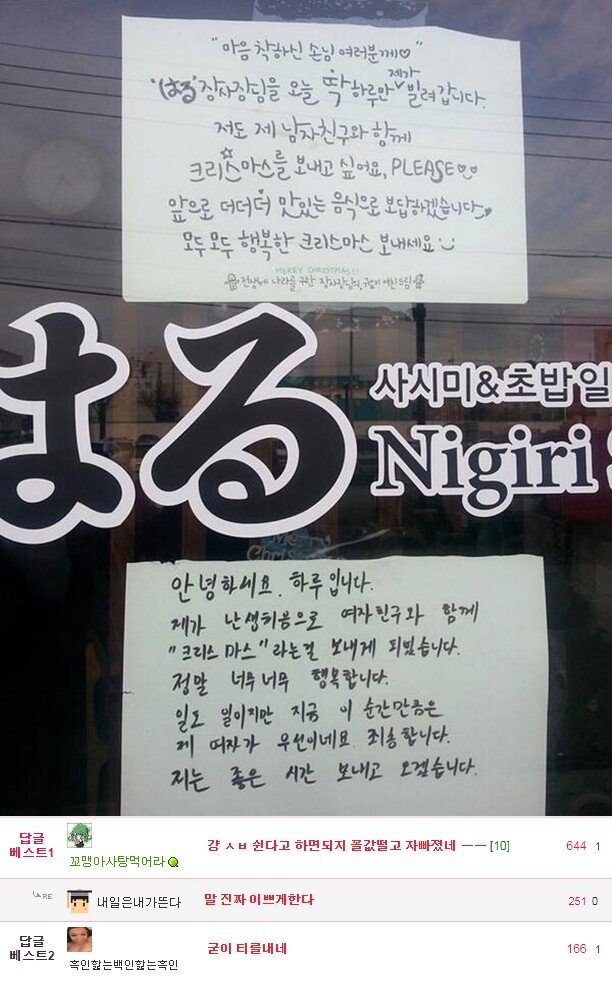 "마음 착하신 손님 여러분께♡"
'はる' 장사장님을 오늘 딱 하루만 제가 빌려갑니다.
저도 제 남자친구와 함께
크리스마스를 보내고 싶어요, PLEASE♡♡
앞으로 더더더 맛있는 음식으로 보답하겠습니다
모두모두 행복한 크리스마스 보내세요
MERRY CHRISTMAS!!
전생에 나라를 구한 장사장님의, 여친드림
はる
사시미&초밥일
Nigiri
안녕하세요. 하루입니다.
제가 난생처음으로 여자친구와 함께
"크리스마스"라는걸 보내게 되었습니다.
정말 너무너무 행복합니다.
일도 일이지만 지금 이 순간만큼은
제 여자가 우선이네요 죄송합니다.
저는 좋은 시간 보내고 오겠습니다.
답글 베스트1 꼬맹아사탕먹어라 걍 ㅅㅂ 쉰다고 하면되지 꼴값떨고 자빠졌네 ㅡㅡ [10] 644 1
RE 내일은내가뜬다 말 진짜 이쁘게한다 251 0
답글 베스트2 흑인핥는백인핥는흑인 굳이 티를내네 166 1